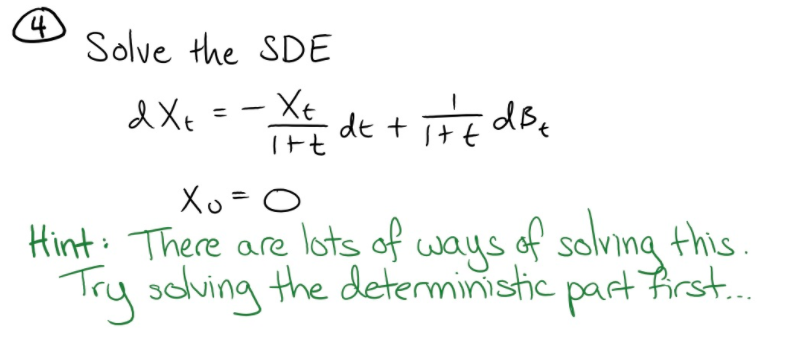 ④ Solve the SDE
dX_t = - X_t/(1+t) dt + 1/(1+t) dB_t
X_0 = 0
Hint: There are lots of ways of solving this.
Try solving the deterministic part first...